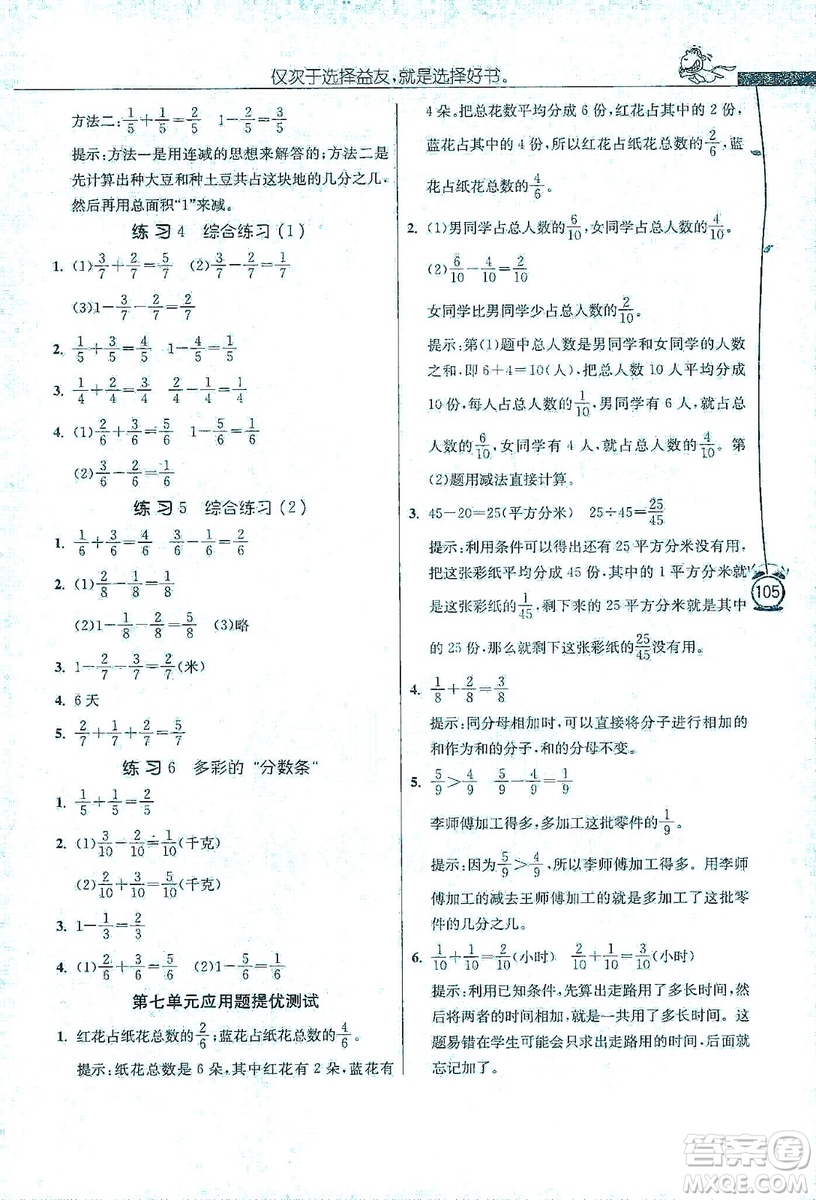 仅次于选择益友,就是选择好书。
方法二:1/5+1/5=2/5　1-2/5=3/5
提示:方法一是用连减的思想来解答的;方法二是
先计算出种大豆和种土豆共占这块地的几分之几,
然后再用总面积“1”来减。
练习4　综合练习(1)
1. (1)3/7+2/7=5/7　(2)3/7-2/7=1/7
(3)1-3/7-2/7=2/7
2. 1/5+3/5=4/5　1-4/5=1/5
3. 1/4+2/4=3/4　1-3/4=1/4
4. (1)2/6+3/6=5/6　1-5/6=1/6
(2)3/6-2/6=1/6
练习5　综合练习(2)
1. 1/6+3/6=4/6　3/6-1/6=2/6
2. (1)1/8+2/8=3/8
(2)1-1/8-2/8=5/8　(3)略
3. 1-2/7-3/7=2/7(米)
4. 6天
5. 2/7+1/7+2/7=5/7
练习6　多彩的“分数条”
1. 1/5+1/5=2/5
2. (1)3/10-2/10=1/10(千克)
(2)2/10+3/10=5/10(千克)
3. 1-1/3=2/3
4. (1)2/6+3/6=5/6　(2)1-5/6=1/6
第七单元应用题提优测试
1. 红花占纸花总数的2/6;蓝花占纸花总数的4/6。
提示:纸花总数是 6 朵,其中红花有 2 朵,蓝花有
4 朵。把总花数平均分成 6 份,红花占其中的 2 份,
蓝花占其中的 4 份,所以红花占纸花总数的2/6,蓝
花占纸花总数的4/6。
2. (1)男同学占总人数的6/10,女同学占总人数的4/10。
(2)6/10-4/10=2/10
女同学比男同学少占总人数的2/10。
提示:第(1)题中总人数是男同学和女同学的人数
之和,即 6+4=10(人),把总人数 10 人平均分成
10 份,每人占总人数的1/10,男同学有 6 人,就占总
人数的6/10,女同学有 4 人,就占总人数的4/10。第
(2)题用减法直接计算。
3. 45-20=25(平方分米)　25÷45=25/45
提示:利用条件可以得出还有 25 平方分米没有用。
把这张彩纸平均分成 45 份,其中的 1 平方分米就
是这张彩纸的1/45,剩下来的 25 平方分米就是其中
的 25 份,那么就剩下这张彩纸的25/45没有用。
4. 1/8+2/8=3/8
提示:同分母相加时,可以直接将分子进行相加的
和作为和的分子,和的分母不变。
5. 5/9>4/9　5/9-4/9=1/9
李师傅加工得多,多加工这批零件的1/9。
提示:因为5/9>4/9,所以李师傅加工得多。用李师
傅加工的减去王师傅加工的就是多加工了这批零
件的几分之几。
6. 1/10+1/10=2/10(小时)　2/10+1/10=3/10(小时)
提示:利用已知条件,先算出走路用了多长时间,然
后将两者的时间相加,就是一共用了多长时间。这
题易错在学生可能会只求出走路用的时间,后面就
忘记加了。
105
答案圈